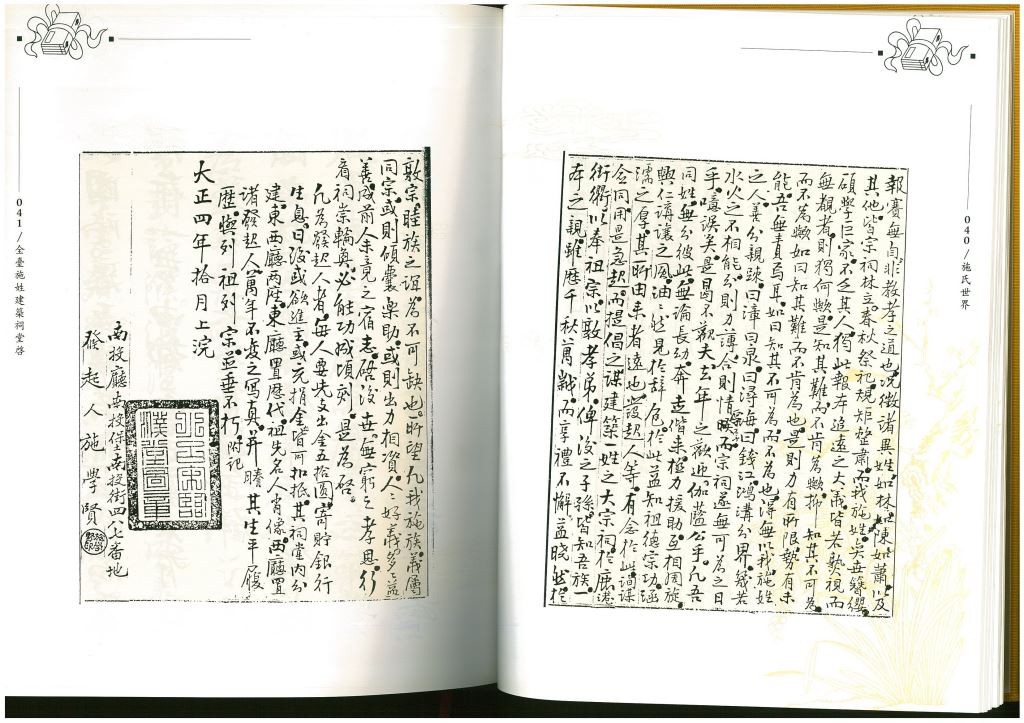 040/施氏世界
報賽每自非教孝之道也況徵諸異姓如林如陳如蕭以及
其他皆宗祠林立春秋祭祀規矩整肅而我施姓奕世簪纓
碩學巨家不乏其人獨此報本追遠之大義皆若歌視而
無覩者則獨何歟是知其難而不肯為歟抑知其不可為
而不為歟如曰知其難而不肯為也是則力有所限勢有未
能吾無責焉耳如曰知其不可為而不為也得毋以我施姓
之人善分親疎曰漳曰泉曰潯每曰錢江鴻溝分界幾若
水火之不相能分則力薄合則情暌而宗祠遂無可為之日
乎噫誤矣是曷不觀夫去年之歡迎伽藍公乎凡吾
同姓無分彼此無論長幼奔走偕來極力援助互相周旋
興仁講讓之風油然見於辭色於此益知祖德宗功涵
濡之厚其所由來者遠也設起人等有念於此同謀
合同用是急起而提倡之謀建築一姓之大宗祠於鹿港
街衢以奉祖宗以敦孝弟俾後之子孫皆知吾族一
本之親雖歷千秋萬載而享禮不懈益曉然於
敦宗睦族之誼為不可缺也所望凡我施族義屬
同宗或則傾囊樂助或則出力相資人人好義多多益
善成前人未竟之宿志啓後世無窮之孝思行
看祠宗輪奐必能功成頃刻是為啓
凡為發起人者每人要先交出金五拾圓寄貯銀行
生息日後或欲進主或充捐金皆可扣抵其祠堂內分
建東西廳兩座東廳置歷代祖先名人肖像西廳置
諸發起人萬年不變之寫真并賸其生平履
歷與列祖列宗並垂不朽 附記
大正四年拾月上浣
南投廳南投堡南投街四八七番地
發起人施學賢
041/全臺施姓建築祠堂啓